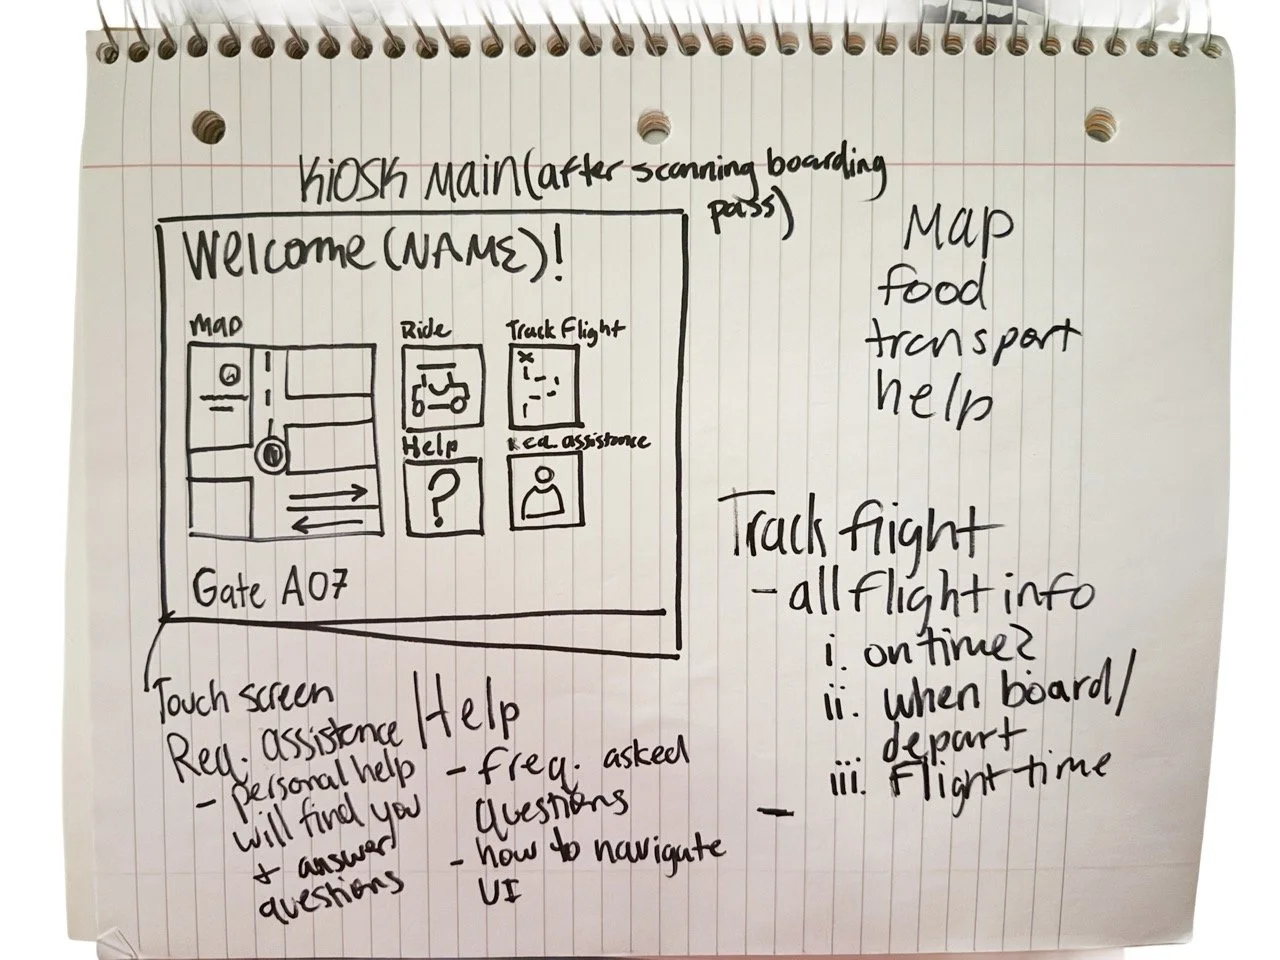 Kiosk Main (after scanning boarding
pass)
Welcome (NAME)!
Map
Ride
Track Flight
Help
Req. assistance
?
Gate A07
Touch screen
Req. assistance
- personal help
will find you
+ answer
questions
Help
- freq. asked
questions
- how to navigate
UI
Map
food
transport
help
Track flight
- all flight info
i. on time?
ii. when board/
depart
iii. Flight time
-